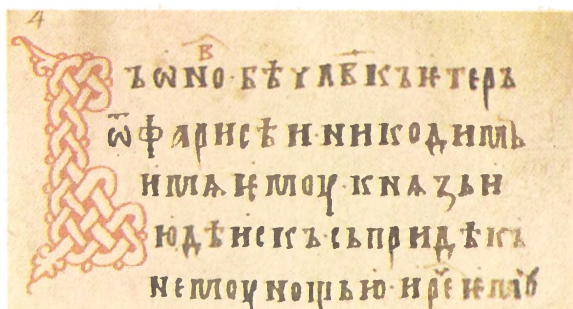 4
В
Въ ѡно·бѣ члв҃къ ѥтеръ
ѿ фарисѣи·никодимь
имѧ ѥмоу·кнѧзь и
юдѣискъ·сь придѣ къ
немоу ношью·и рч҃е